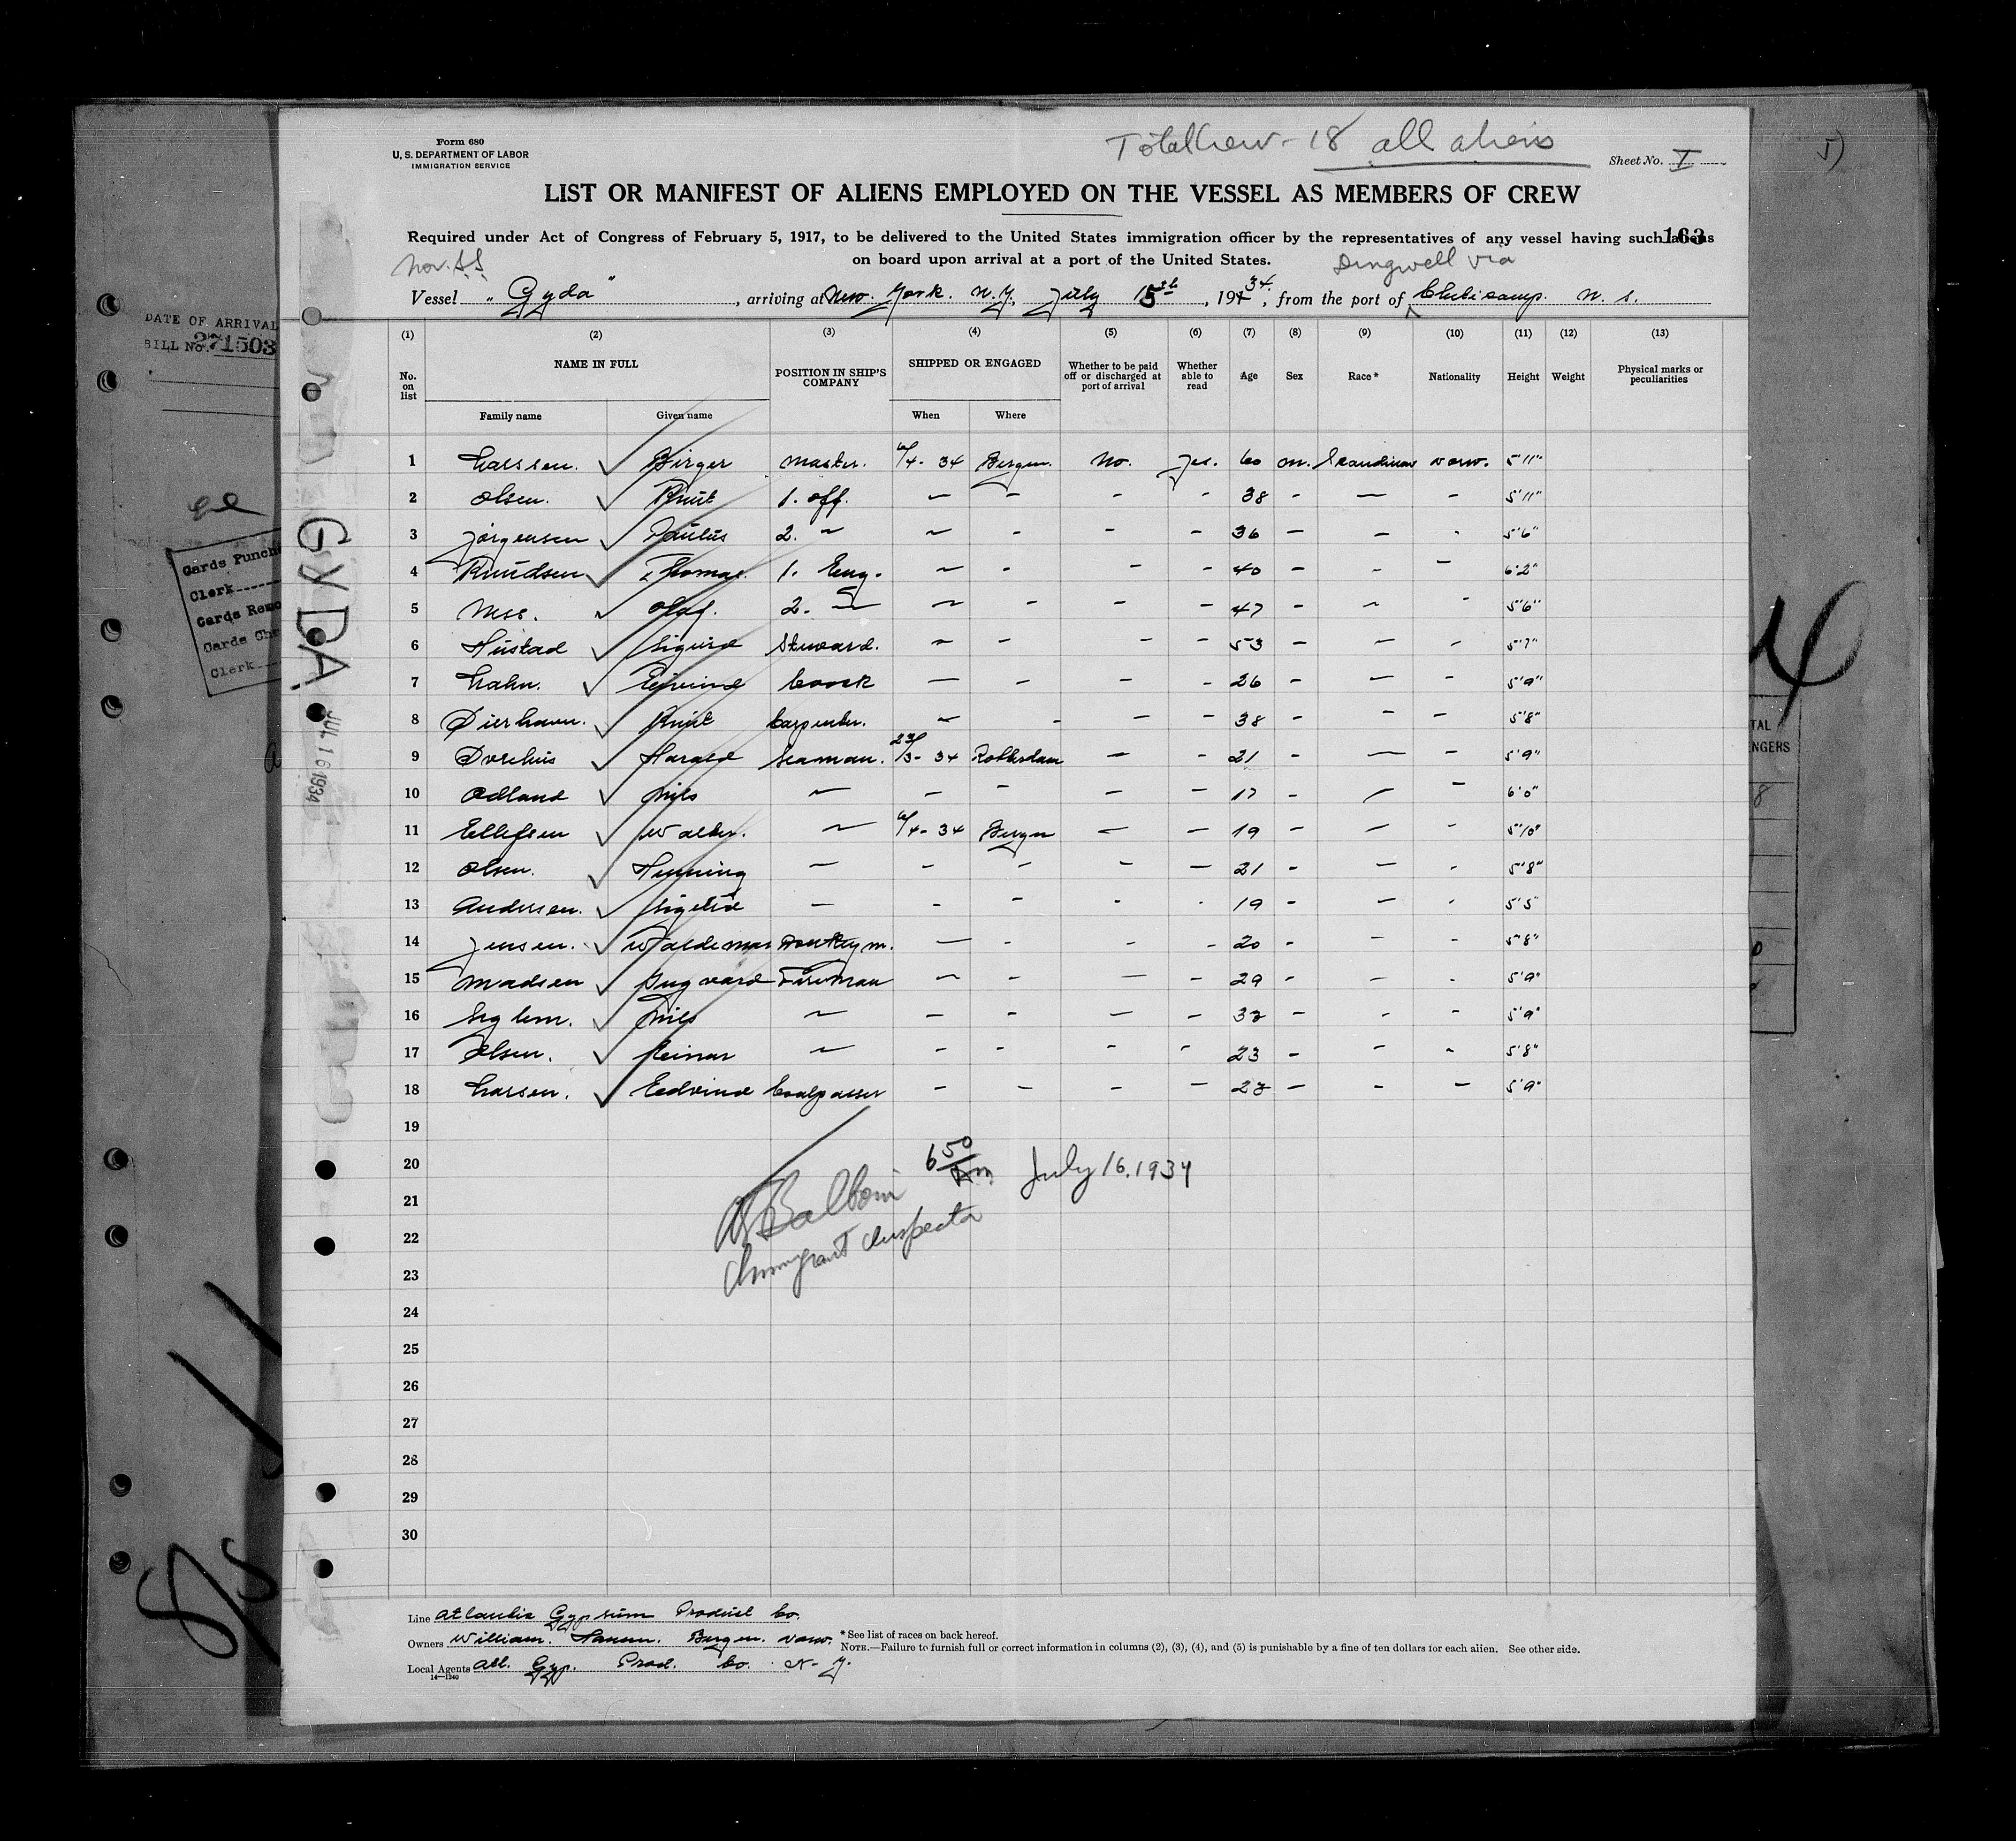 Form 680
U. S. DEPARTMENT OF LABOR
IMMIGRATION SERVICE
Total Crew - 18 all aliens
Sheet No. I
5)
LIST OR MANIFEST OF ALIENS EMPLOYED ON THE VESSEL AS MEMBERS OF CREW
Required under Act of Congress of February 5, 1917, to be delivered to the United States immigration officer by the representatives of any vessel having such aliens
163
on board upon arrival at a port of the United States.
Nor. SS
Dingwell via
Vessel "Gyda", arriving at New York. N.Y. July 15th, 1934, from the port of Cheticamp. N. S.
DATE OF ARRIVAL
BILL No. 271503
(1) (2) (3) (4) (5) (6) (7) (8) (9) (10) (11) (12) (13)
No. on list
NAME IN FULL
Family name
Given name
POSITION IN SHIP'S COMPANY
SHIPPED OR ENGAGED
When
Where
Whether to be paid off or discharged at port of arrival
Whether able to read
Age
Sex
Race*
Nationality
Height
Weight
Physical marks or peculiarities
1 Birger Master. 6/4-34 Bergen. No. Yes. 60 m. Scandinav norw. 5'11"
2 Olsen. Knut 1. off. — - - - 38 - — - 5'11"
3 Jörgensen Paulus 2. ~ ~ - - - 36 - - - 5'6"
4 Knudsen Thomas. 1. Eng. ~ - - - 40 - - - 6'2"
5 Olaf. 2. ~ ~ - - - 47 - - - 5'6"
6 Hustad Sigurd Steward. ~ - - - 53 - - - 5'7"
7 Hahn. Eivind Coock — - - - 26 - - - 5'9"
8 Knut Carpenter. ~ - - - 38 - - - 5'8"
9 Harald Seaman. 23/3-34 Rotterdam - - 21 - — - 5'9"
10 Odland Nils ~ - - - - 17 - - - 6'0"
11 Ellefsen Walter. ~ 6/4-34 Bergen - - 19 - - - 5'10"
12 Olsen. Henning ~ - - - - 21 - - - 5'8"
13 Andersen. Sigurd - - - - - 19 - - - 5'5"
14 Jensen. Waldemar Donkeym. — - - - 20 - - - 5'8"
15 Madsen Ingvard Fireman ~ - - - 29 - - - 5'9"
16 Nils ~ - - - - 32 - - - 5'9"
17 Olsen. Reinar ~ - - - - 23 - - - 5'8"
18 Larsen. Edvind Coalpasser - - - - 22 - - - 5'9"
19
20
21
22
23
24
25
26
27
28
29
30
6 50 Am July 16, 1934
Balboni
Immigrant Inspector
GYDA
JUL 16 1934
Cards Punch
Clerk
Cards Remo
Cards Che
Clerk
TAL
NGERS
8
0
Line Atlantic Gypsum Product Co.
Owners William. Hansen. Bergen. Norw.
Local Agents Atl. Gyp. Prod. Co. N. Y.
14—1240
*See list of races on back hereof.
NOTE.—Failure to furnish full or correct information in columns (2), (3), (4), and (5) is punishable by a fine of ten dollars for each alien. See other side.